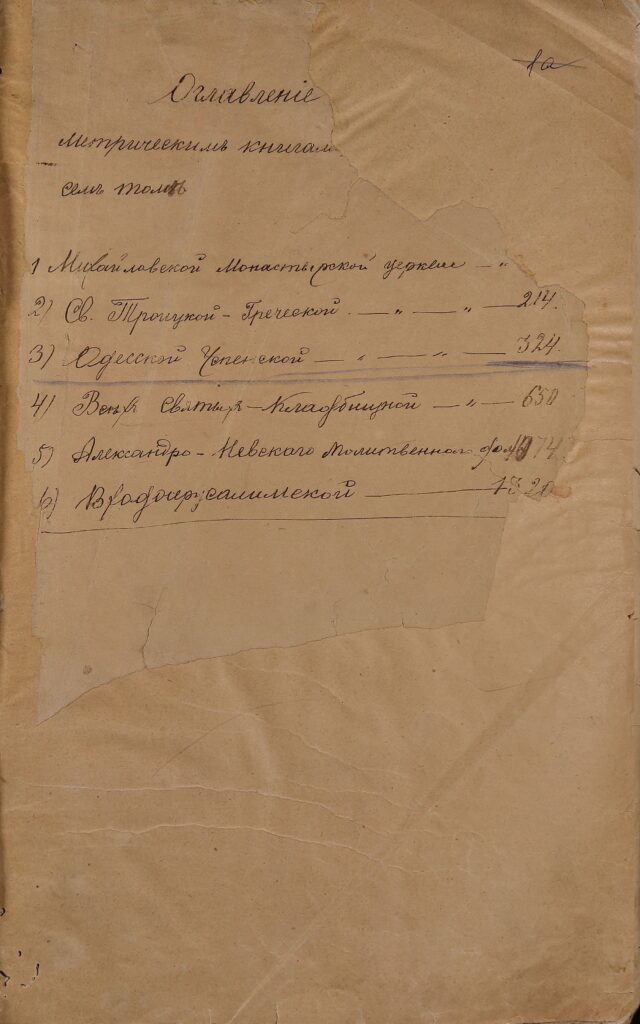 1а
Оглавленіе
метрическимъ книгам
семъ томѣ
1 Михайловской Монастырской церкви — „
2) Св. Троицкой - Греческой — „ — „ — 214.
3) Одесской Успенской — „ — „ — 324.
4) Всѣхъ Святыхъ - Кладбищной — „ — 650
5) Александро - Невскаго Молитвеннаго дома 1074
6) Входоіерусалимской — 1320